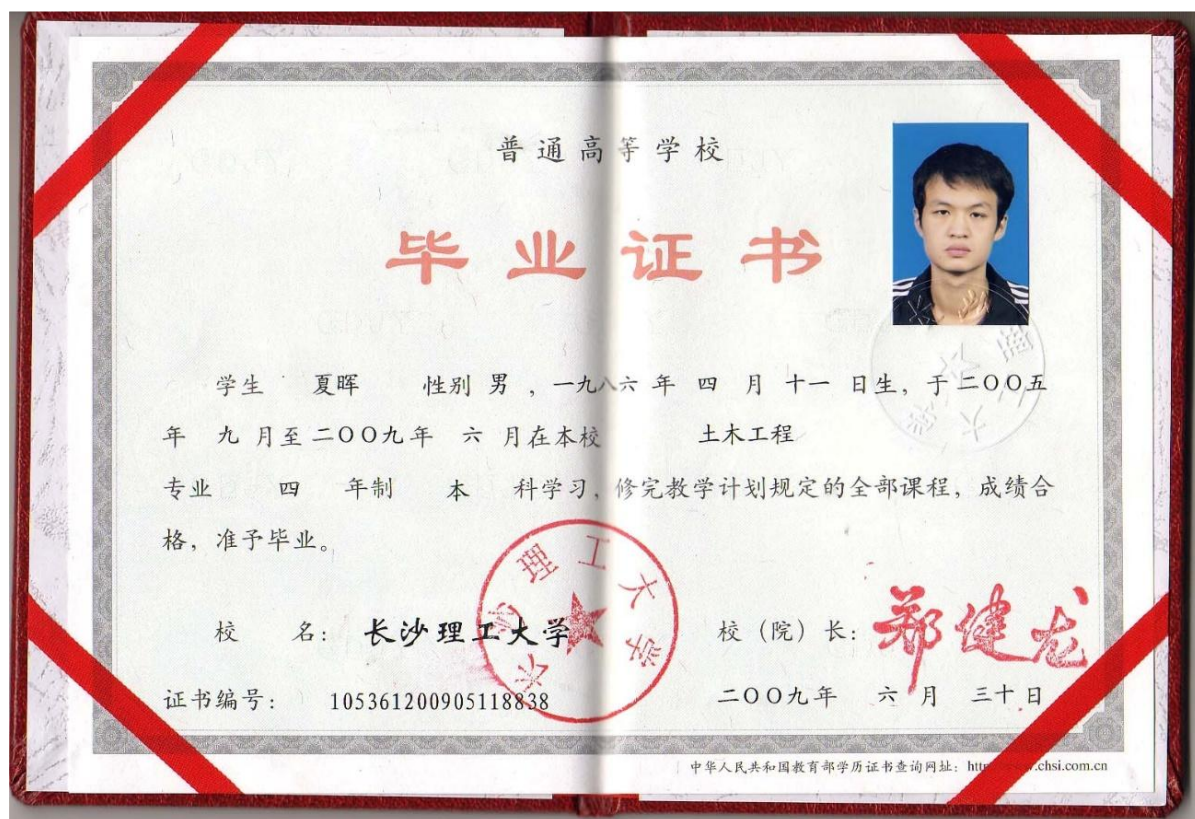 普通高等学校
毕业证书
学生 夏晖 性别 男 ，一九八六 年 四 月 十一 日生，于二〇〇五
年 九 月至二〇〇九年 六 月在本校 土木工程
专业 四 年制 本 科学习，修完教学计划规定的全部课程，成绩合
格，准予毕业。
长沙理工大学
校 名： 长沙理工大学 校（院）长： 郑健龙
证书编号： 105361200905118838 二〇〇九年 六 月 三十 日
中华人民共和国教育部学历证书查询网址：http://www.chsi.com.cn